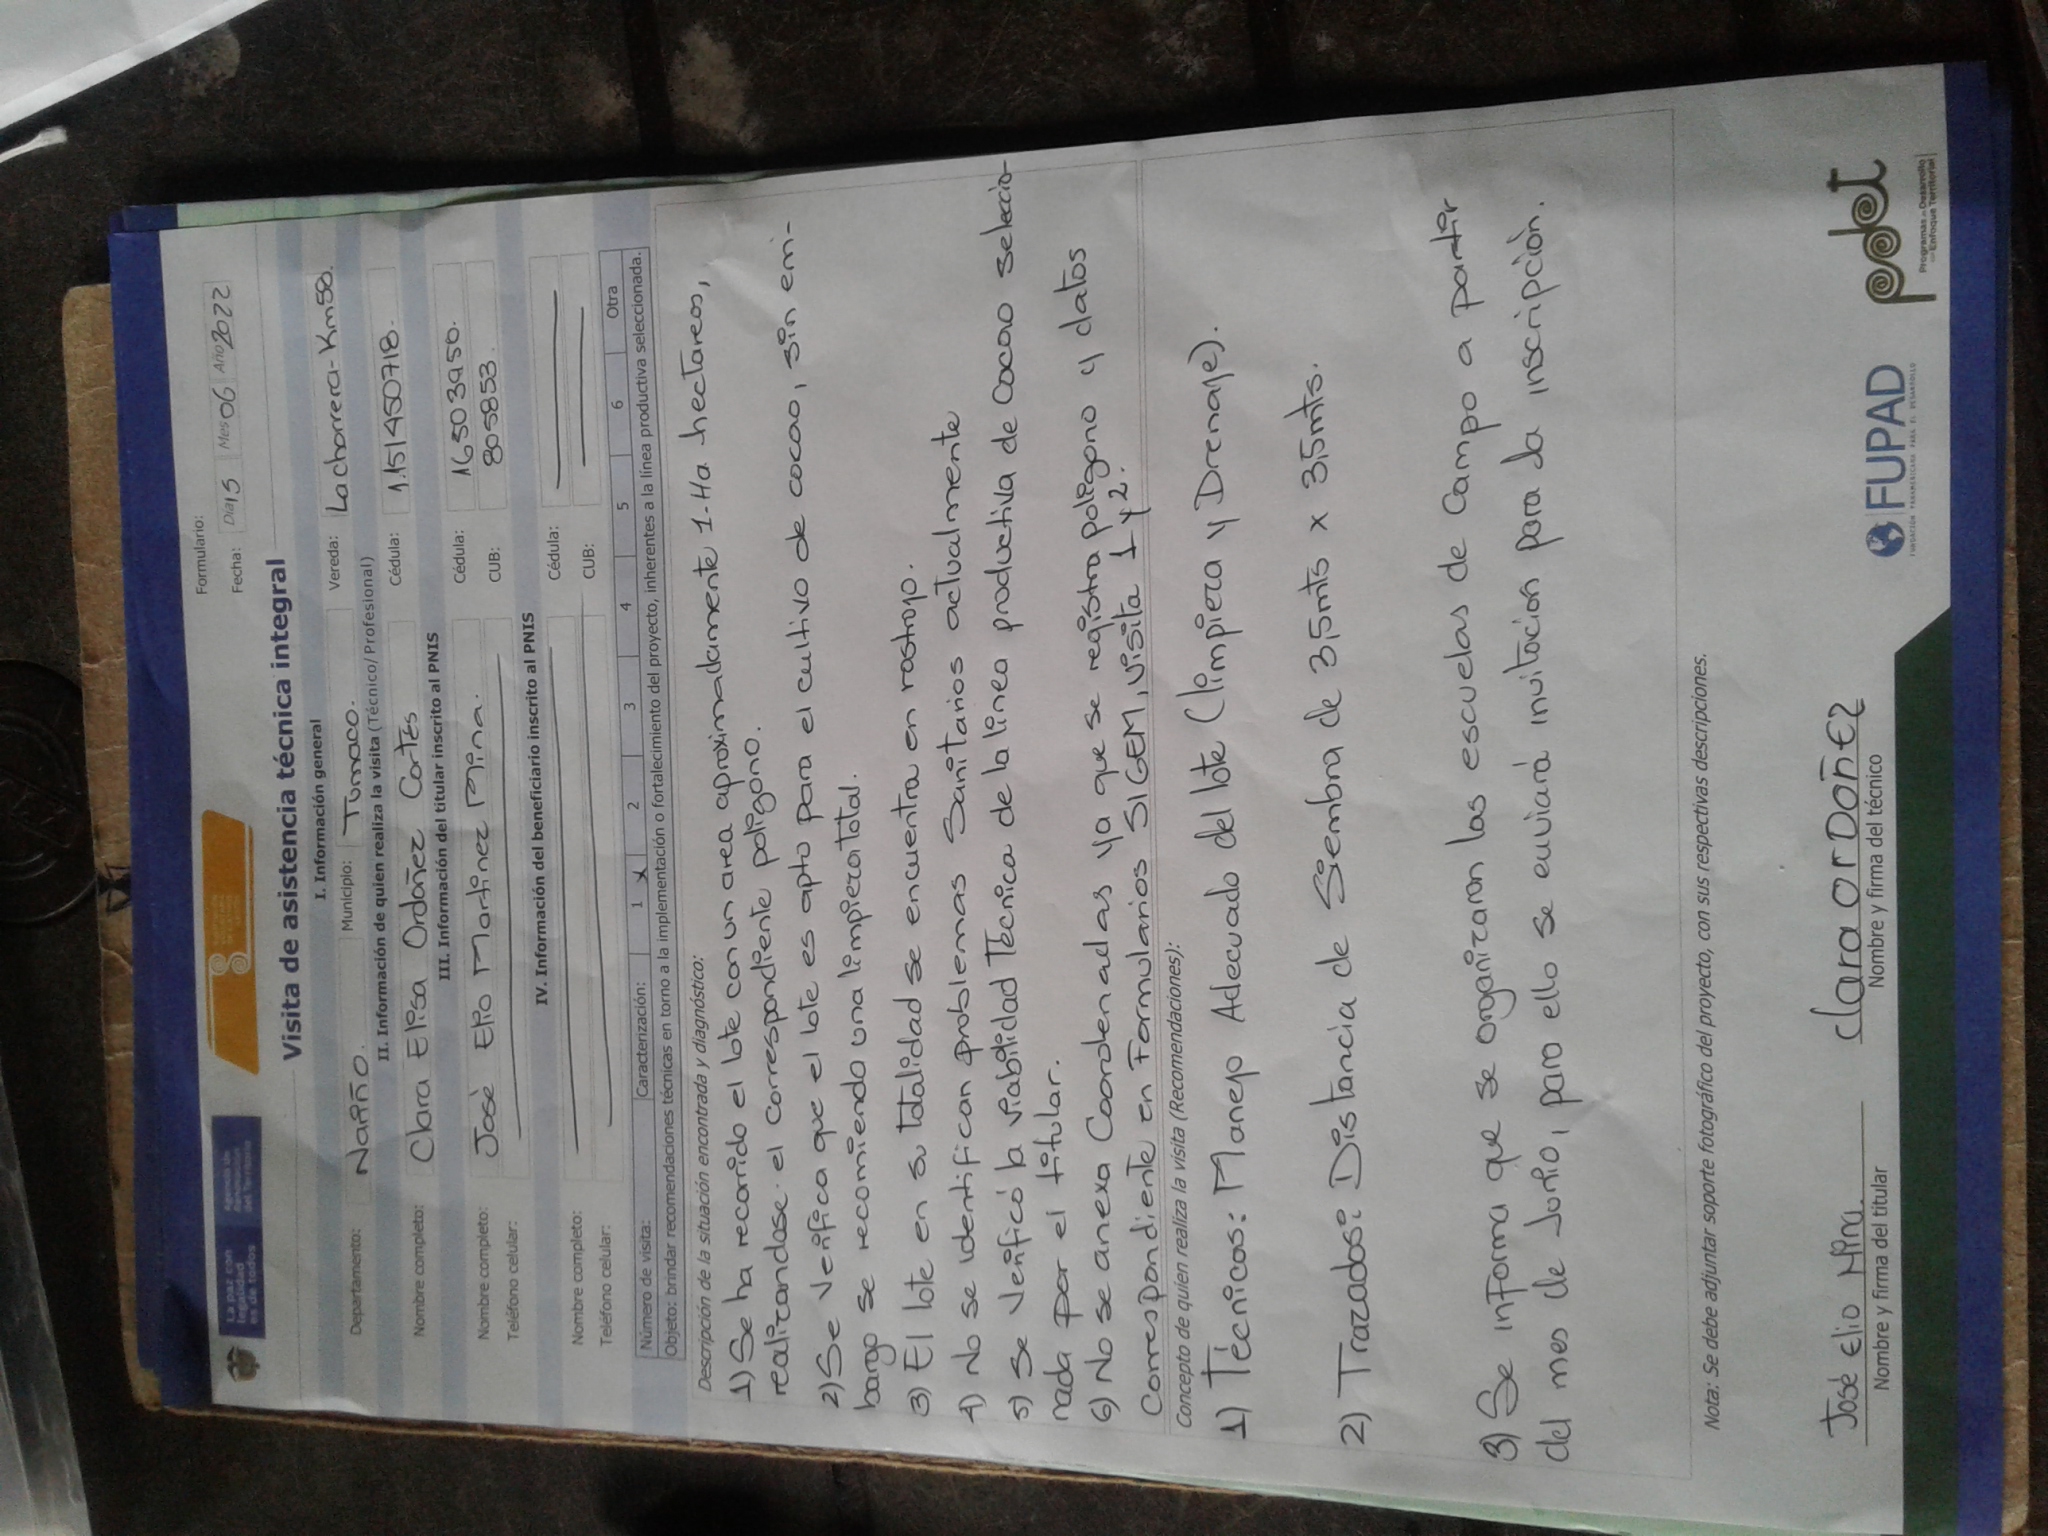 La paz con
legalidad
es de todos
Agencia de
Renovación
del Territorio
Formulario:
Fecha: Dia 15 Mes 06 Año 2022
Visita de asistencia técnica integral
I. Información general
Departamento: Nariño. Municipio: Tumaco. Vereda: La chorrera-Km58.
II. Información de quien realiza la visita (Técnico/Profesional)
Nombre completo: Clara Elisa Ordoñez Cortés Cédula: 1.151450718.
III. Información del titular inscrito al PNIS
Nombre completo: José Elio Martinez Mina. Cédula: 16503950.
Teléfono celular: CUB: 805853.
IV. Información del beneficiario inscrito al PNIS
Nombre completo: Cédula:
Teléfono celular: CUB:
Número de visita: Caracterización: 1 x 2 3 4 5 6 Otra
Objeto: brindar recomendaciones técnicas en torno a la implementación o fortalecimiento del proyecto, inherentes a la línea productiva seleccionada.
Descripción de la situación encontrada y diagnóstico:
1) Se ha recorrido el lote con un area aproximadamente 1-Ha hectareas,
realizandose el correspondiente poligono.
2) Se verifica que el lote es apto para el cultivo de cacao, sin em-
bargo se recomiendo una limpieza total.
3) El lote en su totalidad se encuentra en rastrojo.
4) No se identifican problemas Sanitarios actualmente
5) se verificó la viabilidad Técnica de la linea productiva de Cacao seleccio-
nada por el titular.
6) No se anexa Coordenadas ya que se registra poligono y datos
Correspondiente en Formularios SIGEM, visita 1 y 2.
Concepto de quien realiza la visita (Recomendaciones):
1) Técnicos: Manejo Adecuado del lote (limpieza y Drenaje).
2) Trazados: Distancia de Siembra de 3,5mts x 3,5mts.
3) Se informa que se organizaran las escuelas de Campo a partir
del mes de Junio, para ello se enviará invitación para la inscripción.
Nota: Se debe adjuntar soporte fotográfico del proyecto, con sus respectivas descripciones.
José Elio Mina
Nombre y firma del titular
Clara Ordoñez
Nombre y firma del técnico
FUPAD
FUNDACIÓN PANAMERICANA PARA EL DESARROLLO
pdet
Programas de Desarrollo
con Enfoque Territorial